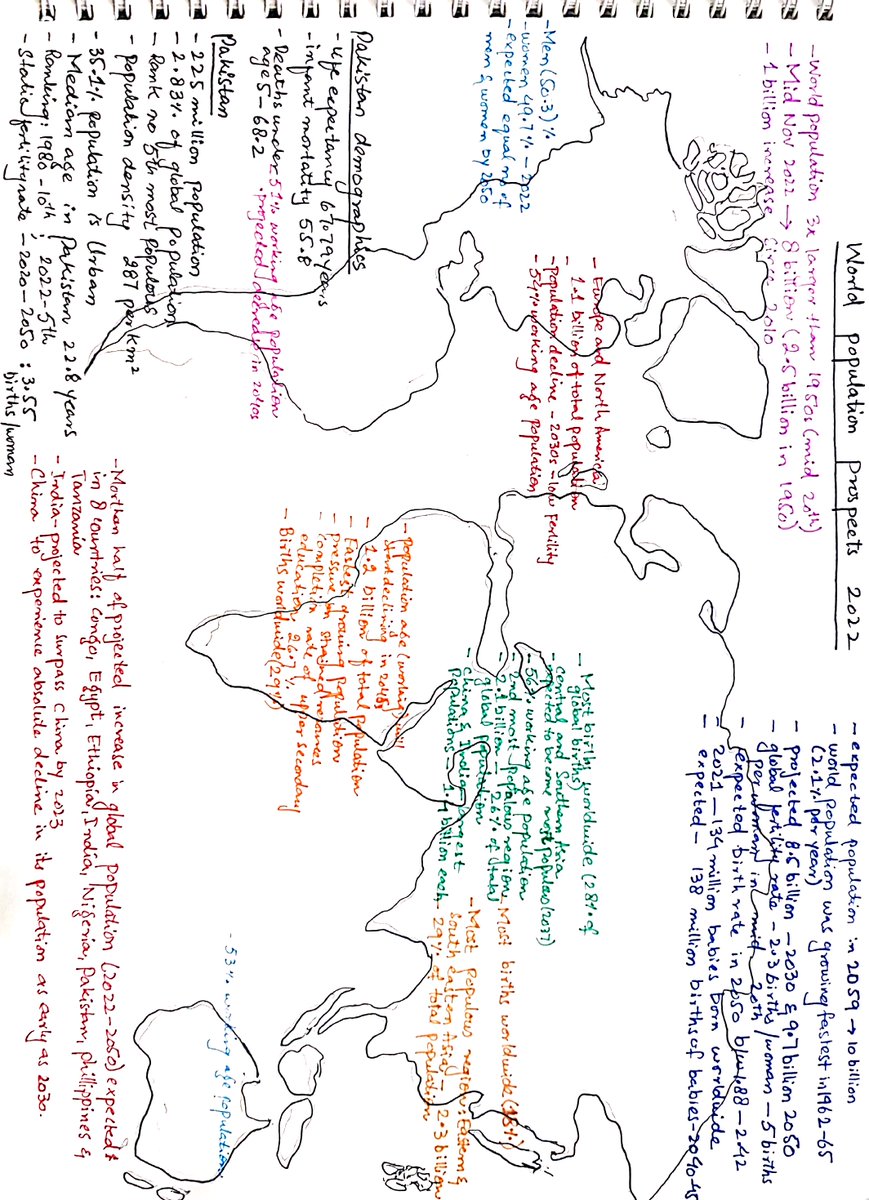 World population prospects 2022
- World population 3x larger than 1950s (mid 20th)
- Mid Nov 2022 → 8 billion (2.5 billion in 1950)
- 1 billion increase circa 2010
- Men (50.3)%
- women 49.7% - 2022
- expected equal no of
men & women by 2050
- Europe and North America:
1.1 billion of total population
- population decline - 2030s - low fertility
- 54% working age population
- expected population in 2059 → 10 billion
- world population was growing fastest in 1962-65
(2.1% per year)
- projected 8.5 billion - 2030 & 9.7 billion 2050
- global fertility rate - 2.3 births/woman - 5 births
per woman in mid 20th
- expected birth rate in 2050 b/w 1.88 - 2.42
- 2021 - 134 million babies born worldwide
expected - 138 million births of babies - 2040-45
- Most births worldwide (28% of
global births)
central and Southern Asia
- expected to become most populous (2037)
- 56% working age population
- 2nd most populous region
- 2.1 billion - 26% of total
global population
- China & India - largest
populations - 1.4 billion each
- Most births worldwide (18%)
- Most populous region: Eastern &
South eastern Asia - 2.3 billion
- 29% of total population
- Population age (working)
start declining in 2040s
- 1.2 billion of total population
- Fastest growing Population
- pressure on strained
- completion rate of upper secondary
education 26.7%
- Births worldwide (29%)
- 53% working age population.
Pakistan demographics
- life expectancy 67079 years
- infant mortality 55.8
- Deaths under 5
age 5 - 68.2
- 57% working age population
• projected, decrease in 2040s
Pakistan
- 225 million population
- 2.83% of global population
- Rank no 5th most populous
- population density 287 per km²
- 35.1% population is Urban
- Median age in Pakistan 22.8 years
- Ranking: 1980 - 10th ; 2022 - 5th
- Static fertility rate - 2020 - 2050 : 3.55
births/woman
- Morthan half of projected increase in global population (2022-2050) expected
in 8 countries: Congo, Egypt, Ethiopia, India, Nigeria, Pakistan, Phillippines &
Tanzania
- India - projected to surpass China by 2023
- China to experience absolute decline in its population as early as 2030.